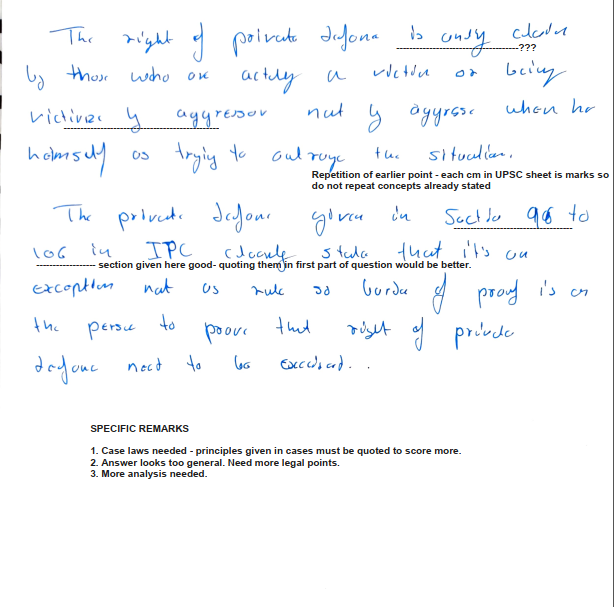 The right of private defence is only claim
-----------------------------???
by those who are actully a victim or being
victimize by aggressor not by aggressor when he
himself is trying to outrage the situation.
Repetition of earlier point - each cm in UPSC sheet is marks so
do not repeat concepts already stated
The private defence given in Section 96 to
106 in IPC clearly state that it's an
--------------- section given here good- quoting them in first part of question would be better.
exception not as rule so burden of proof is on
the person to prove that right of private
defence need to be
SPECIFIC REMARKS
1. Case laws needed - principles given in cases must be quoted to score more.
2. Answer looks too general. Need more legal points.
3. More analysis needed.